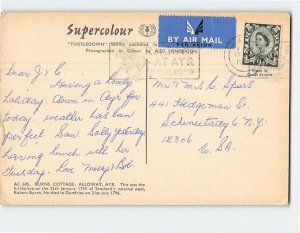 Supercolour
"THISTLEDOWN" SERIES published
Photographed in Colour by A.D. HENDERSON
BY AIR MAIL
PAR AVION
AT AYR
Dear J & C.
Having a lovely
holiday. Down in Ayr for
today. weather has been
perfect. Saw Sally yesterday
having lunch with her
Tuesday. Love Marge & Bob
Mr & Mrs C. Speirs
441 Hodgeman St.
Schenectady 6 N.Y.
12306
U.S.A.
AC 685. BURNS COTTAGE, ALLOWAY, AYR. This was the
birthplace on the 25th January 1759 of Scotland's national poet,
Robert Burns. He died in Dumfries on 21st July 1796.